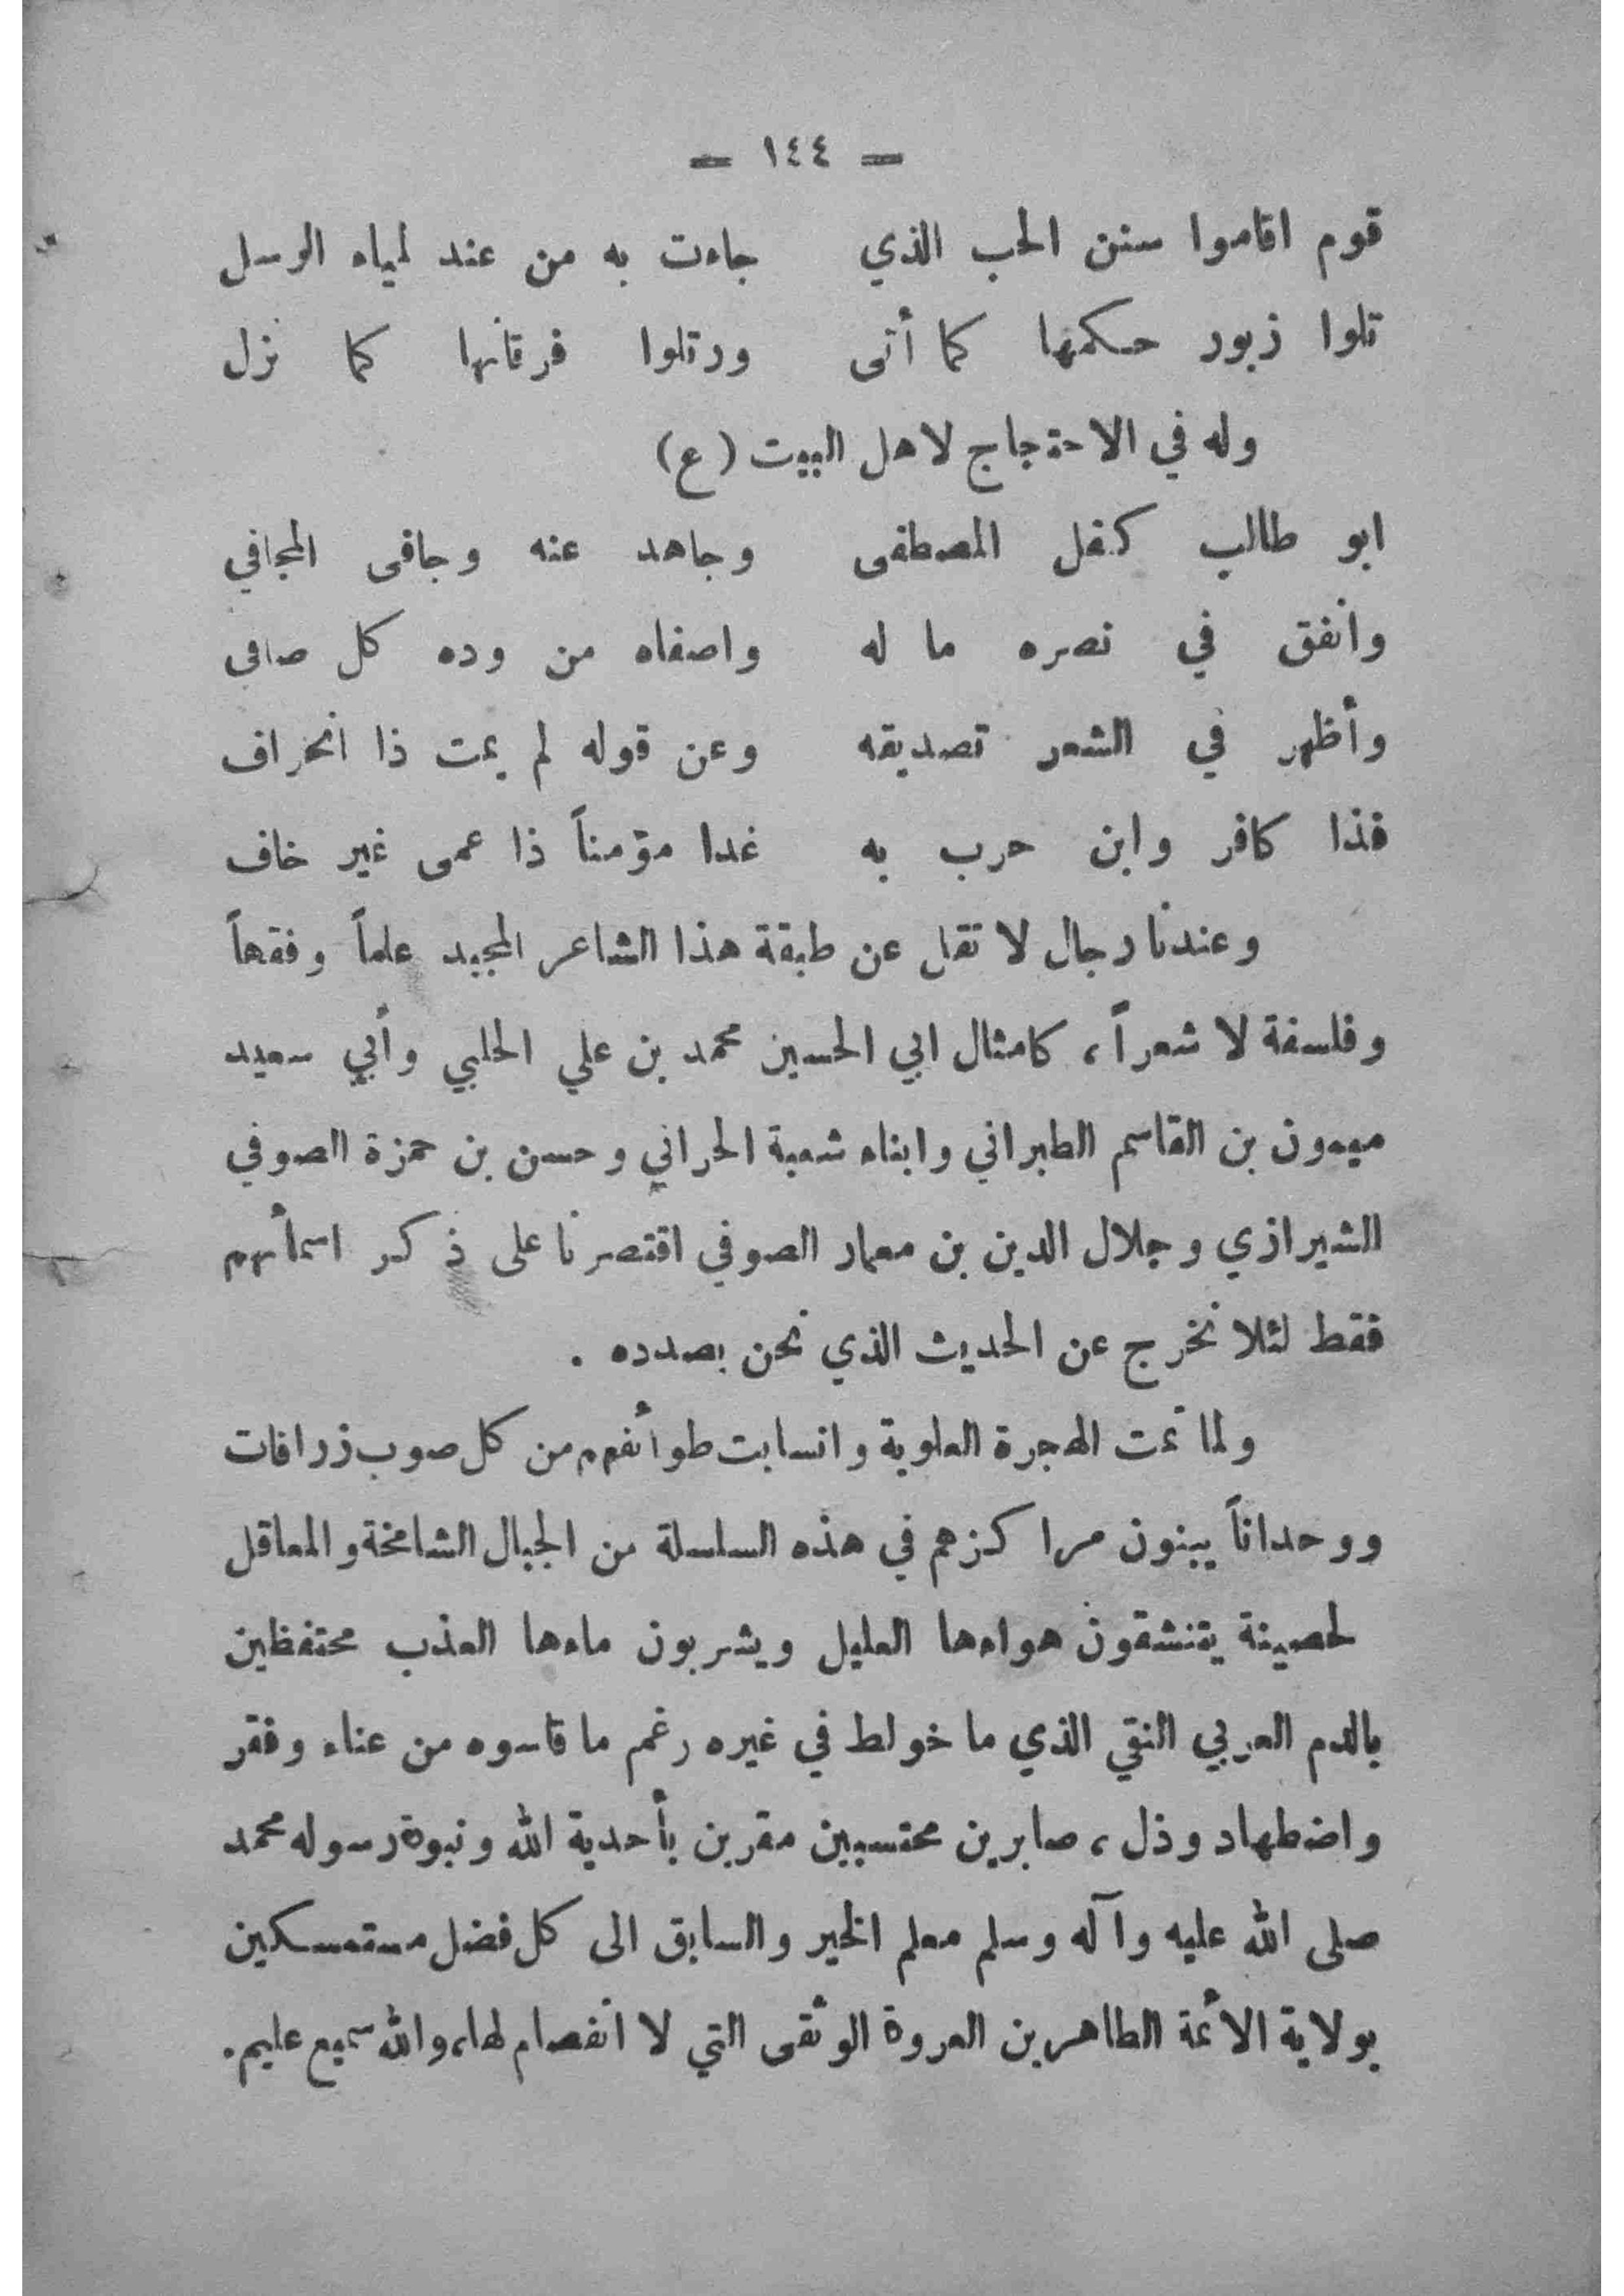 — ١٤٤ —
قوم اقاموا سنن الحب الذي جاءت به من عند لمياء الرسل
تلوا زبور حكمها كما أتى ورتلوا فرقانها كما نزل
وله في الاحتجاج لاهل البيت (ع)
ابو طالب كفل المصطفى وجاهد عنه وجافى المجافي
وانفق في نصره ما له واصفاه من وده كل صافى
وأظهر في الشعر تصديقه وعن قوله لم يمت ذا انحراف
فذا كافر وابن حرب به غدا مؤمناً ذا عمى غير خاف
وعندنا رجال لا تقل عن طبقة هذا الشاعر المجيد علماً وفقهاً
وفلسفة لا شعراً، كامثال ابي الحسين محمد بن علي الحلبي وأبي سعيد
ميمون بن القاسم الطبراني وابناء شعبة الحراني وحسن بن حمزة الصوفي
الشيرازي وجلال الدين بن معمار الصوفي اقتصرنا على ذكر اسمأئهم
فقط لئلا نخرج عن الحديث الذي نحن بصدده .
ولما تمت الهجرة العلوية وانسابت طوأئفهم من كل صوب زرافات
ووحداناً يبنون مراكزهم في هذه السلسلة من الجبال الشامخة والمعاقل
لحصينة يتنشقون هواءها العليل ويشربون ماءها العذب محتفظين
بالدم العربي النقي الذي ما خولط في غيره رغم ما قاسوه من عناء وفقر
واضطهاد وذل، صابرين محتسبين مقرين بأحدية الله ونبوة رسوله محمد
صلى الله عليه وآله وسلم معلم الخير والسابق الى كل فضل مستمسكين
بولاية الأئمة الطاهرين العروة الوثقى التي لا انفصام لها، والله سميع عليم.